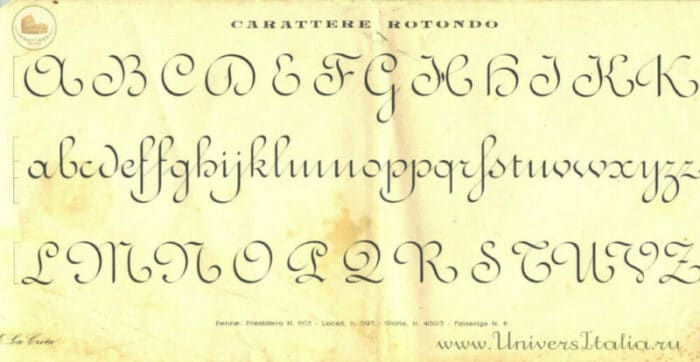 CARATTERE ROTONDO
A B C D E F G H H I K K
a b c d e f f g h i j k l m n o p p q r s t u v w x y z z
L M N O P Q R S T U V Z
Penne: Presbitero N. - Locati, n. - Gloria, N. - Falseriga N. 8
La Costa
www.UniversItalia.ru